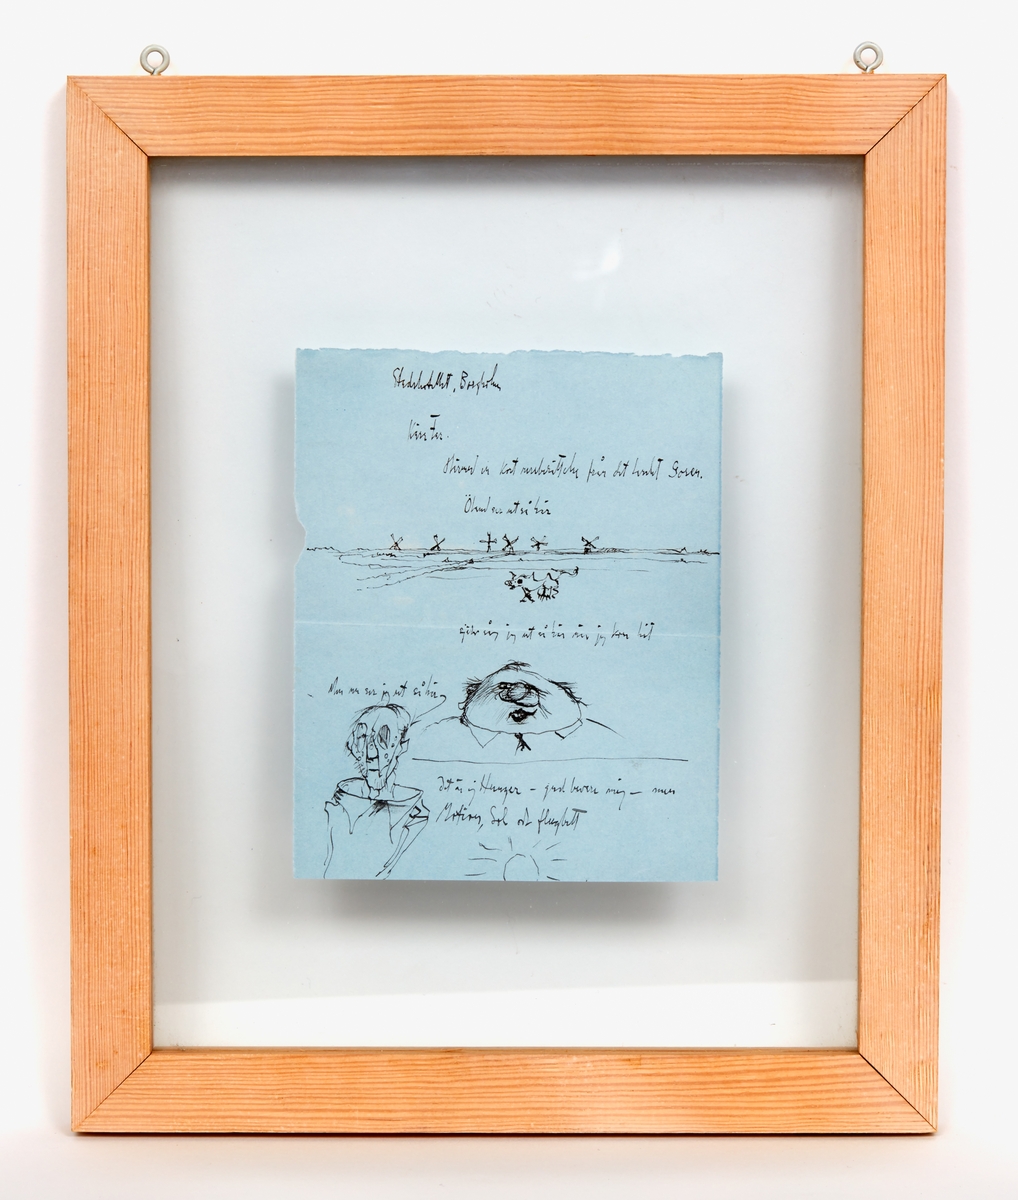 Stadshotellet, Borgholm
Käre Fer.
Härmed en kort från det Gosen.
Öland ser ut så här
såg jag ut så här när jag kom hit
Men nu ser jag ut så här
Det är ej Hunger – gud bevare mig – men
Motion, Sol och